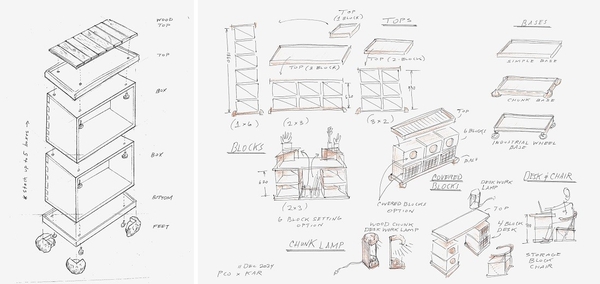 WOOD
TOP
TOP
BOX
BOX
BOTTOM
FEET
TOP
(1 BLOCK)
TOPS
TOP (3 BLOCK)
TOP (2-BLOCK)
(1x6)
(2x3)
(3x2)
BASES
SIMPLE BASE
CHUNK BASE
INDUSTRIAL WHEEL
BASE
BLOCKS
(2x3)
6 BLOCK SETTING
OPTION
TOP
6 BLOCKS
BASE
COVERED BLOCKS
OPTION
COVERED
BLOCKS
DESK & CHAIR
DESK WORK
LAMP
TOP
4 BLOCK
DESK
STORAGE
BLOCK
CHAIR
WOOD CHUNK
DESK WORK LAMP
CHUNK LAMP